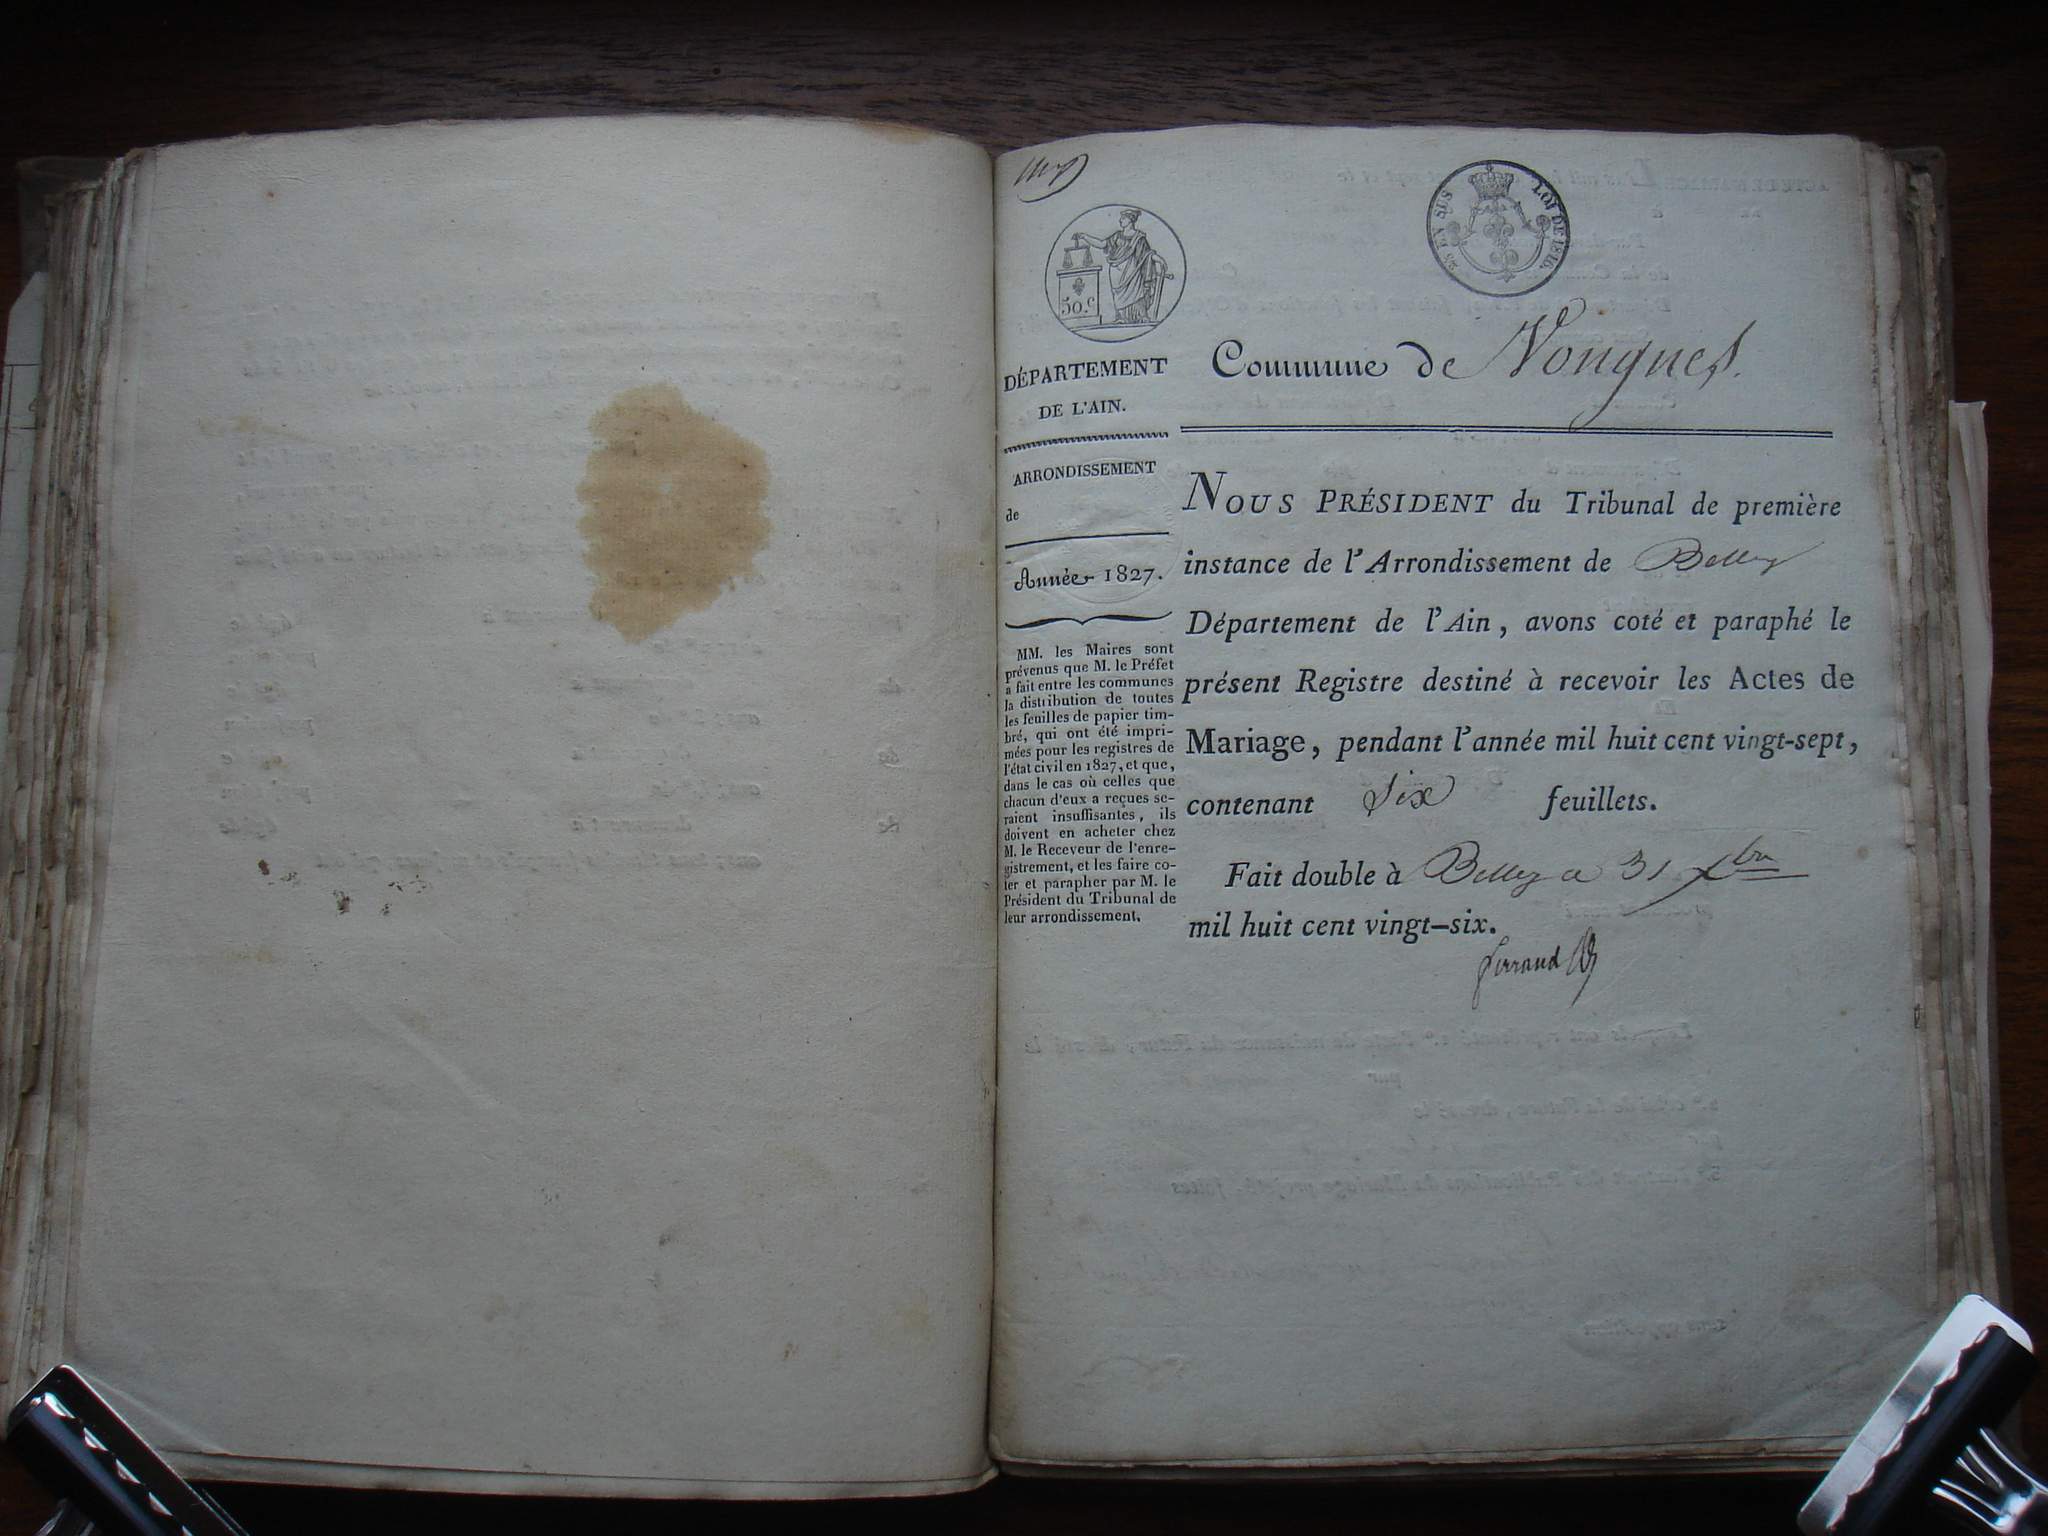 25 EN SUS LOI DE 1816.
50.C
DÉPARTEMENT
DE L'AIN.
ARRONDISSEMENT
de
Année 1827.
MM. les Maires sont
prévenus que M. le Préfet
a fait entre les communes
la distribution de toutes
les feuilles de papier tim-
bré, qui ont été impri-
mées pour les registres de
l'état civil en 1827, et que,
dans le cas où celles que
chacun d'eux a reçues se-
raient insuffisantes, ils
doivent en acheter chez
M. le Receveur de l'enre-
gistrement, et les faire co-
ter et parapher par M. le
Président du Tribunal de
leur arrondissement.
Commune de Vongnes.
NOUS PRÉSIDENT du Tribunal de première
instance de l'Arrondissement de Belley
Département de l'Ain, avons coté et paraphé le
présent Registre destiné à recevoir les Actes de
Mariage, pendant l'année mil huit cent vingt-sept,
contenant six feuillets.
Fait double à Belley ce 31 Xbre
mil huit cent vingt-six.